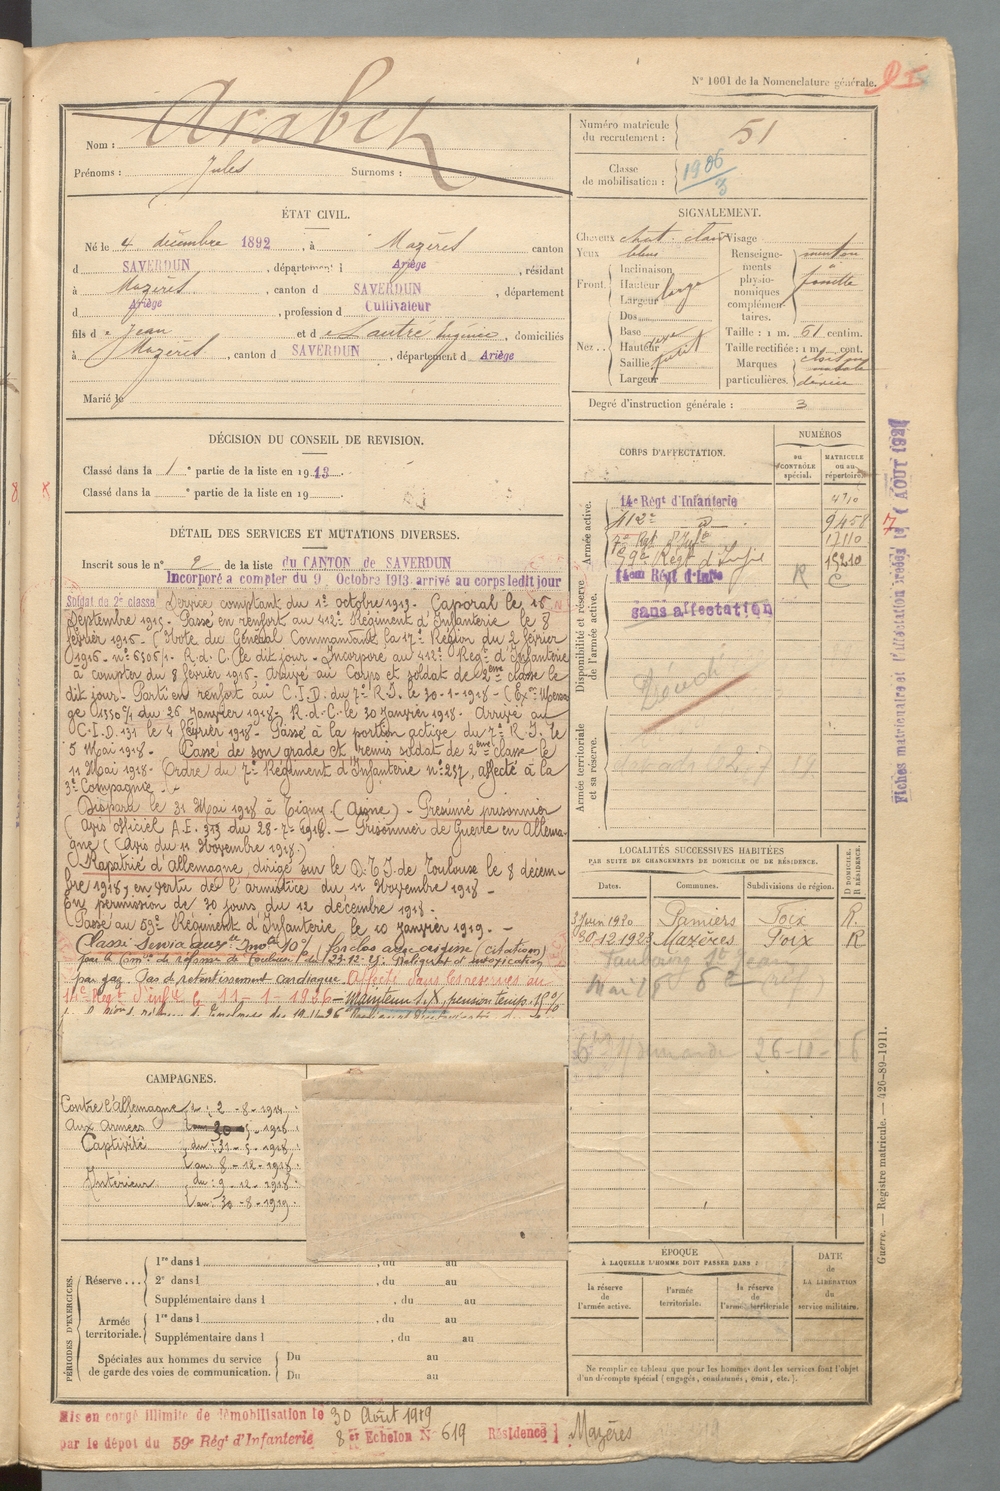 N° 1001 de la Nomenclature générale.
Nom :
Prénoms : Jules Surnoms :
Numéro matricule du recrutement : 51
Classe de mobilisation : 1906/3
ÉTAT CIVIL.
Né le 4 décembre 1892, à Mazères canton
d SAVERDUN, département d Ariège, résidant
à Mazères, canton d SAVERDUN, département
d Ariège, profession d Cultivateur
fils de Jean et de Lautre Eugénie, domiciliés
à Mazères, canton d SAVERDUN, département d Ariège
Marié le
SIGNALEMENT.
Cheveux chat. clair Visage
Yeux bleus
Front. Inclinaison
Hauteur
Largeur large
Nez.. Dos
Base
Hauteur
Saillie
Largeur
Renseignements physionomiques complémentaires. menton à fossette
Taille : 1 m. 61 centim.
Taille rectifiée : 1 m. cent.
Marques particulières.
Degré d'instruction générale : 3
DÉCISION DU CONSEIL DE REVISION.
Classé dans la 1e partie de la liste en 1913.
Classé dans la e partie de la liste en 19
DÉTAIL DES SERVICES ET MUTATIONS DIVERSES.
Inscrit sous le n° 2 de la liste du CANTON de SAVERDUN
Incorporé a compter du 9 Octobre 1913 arrivé au corps ledit jour
Soldat de 2e classe Service comptant du 1er octobre 1913. Caporal le 16
Septembre 1915. Passé en renfort au 412e Régiment d'Infanterie le 8
février 1916. (Note du Général Commandant la 17e Région du 2 février
1916 - n° 6306/1 - R.d.C. le dit jour - Incorporé au 412e Regt d'Infanterie
à compter du 8 février 1916. Arrivé au Corps et soldat de 2ème classe le
dit jour - Parti en renfort au C.I.D. du 7e R.I. le 30-1-1918 - (Exon Messa
ge 01350 c/1 du 26 janvier 1918 - R.d.C. le 30 janvier 1918 - Arrivé au
C.I.D. 131 le 4 février 1918 - Passé à la portion active du 7e R.I. le
5 Mai 1918 - Cassé de son grade et remis soldat de 2ème classe le
11 Mai 1918 - Ordre du 7e Régiment d'Infanterie n° 237, affecté à la
3e Compagnie
Disparu le 31 Mai 1918 à Tigny (Aisne) - Présumé prisonnier
(Avis officiel A.E. 373 du 28-7-1918. - Prisonnier de Guerre en Allema-
gne (Avis du 11 Novembre 1918.)
Rapatrié d'Allemagne, dirigé sur le D.T.I. de Toulouse le 8 décem-
bre 1918, en vertu de l'armistice du 11 Novembre 1918 -
En permission de 30 jours du 12 décembre 1918 -
Passé au 59e Régiment d'Infanterie le 10 janvier 1919. -
Classé Service aux 10% (citation)
par la Con de réforme de Toulouse du 23-12-25. Reliquat d'intoxication
par gaz. Pas de retentissement cardiaque. Affecté dans les réserves au
14e Regt d'Infie le 11-1-1926 - Maintenu S.X, pension temp. 10%
CORPS D'AFFECTATION.
NUMÉROS
DU CONTRÔLE spécial.
MATRICULE ou au répertoire.
Armée active.
14e Régt d'Infanterie 4710
412e d° 9458
7e Rgt d'Infie 17110
59e Regt d'Infie 15210
Disponibilité et réserve de l'armée active.
14em Régt d'Infie R C
sans affectation
Armée territoriale et sa réserve.
Fiches matriculaire et d'affectation créées le AOUT 192
LOCALITÉS SUCCESSIVES HABITÉES
PAR SUITE DE CHANGEMENTS DE DOMICILE OU DE RÉSIDENCE.
Dates. Communes. Subdivisions de région. D DOMICILE. R RÉSIDENCE.
3 Juin 1920 Pamiers Foix R
30-12-1923 Mazères Foix R
Faubourg St Jean
26-10-26
CAMPAGNES.
Contre l'Allemagne du : 2 - 8 - 1914
Aux Armées au : 30 - 5 - 1918
Captivité du : 31 - 5 - 1918
au : 8 - 12 - 1918
Intérieur du : 9 - 12 - 1918
au : 30 - 8 - 1919
PÉRIODES D'EXERCICES.
Réserve... 1re dans l , du au
2e dans l , du au
Supplémentaire dans l , du au
Armée territoriale. 1re dans l , du au
Supplémentaire dans l , du au
Spéciales aux hommes du service de garde des voies de communication. Du au
Du au
ÉPOQUE
À LAQUELLE L'HOMME DOIT PASSER DANS :
la réserve de l'armée active.
l'armée territoriale.
la réserve de l'armée territoriale
DATE de LA LIBÉRATION du service militaire.
Ne remplir ce tableau que pour les hommes dont les services font l'objet
d'un décompte spécial (engagés, condamnés, omis, etc.).
Guerre. — Registre matricule. — 426-89-1911.
Mis en congé illimité de démobilisation le 30 Août 1919
par le dépôt du 59e Régt d'Infanterie 8e Echelon N° 619 Résidence Mazères